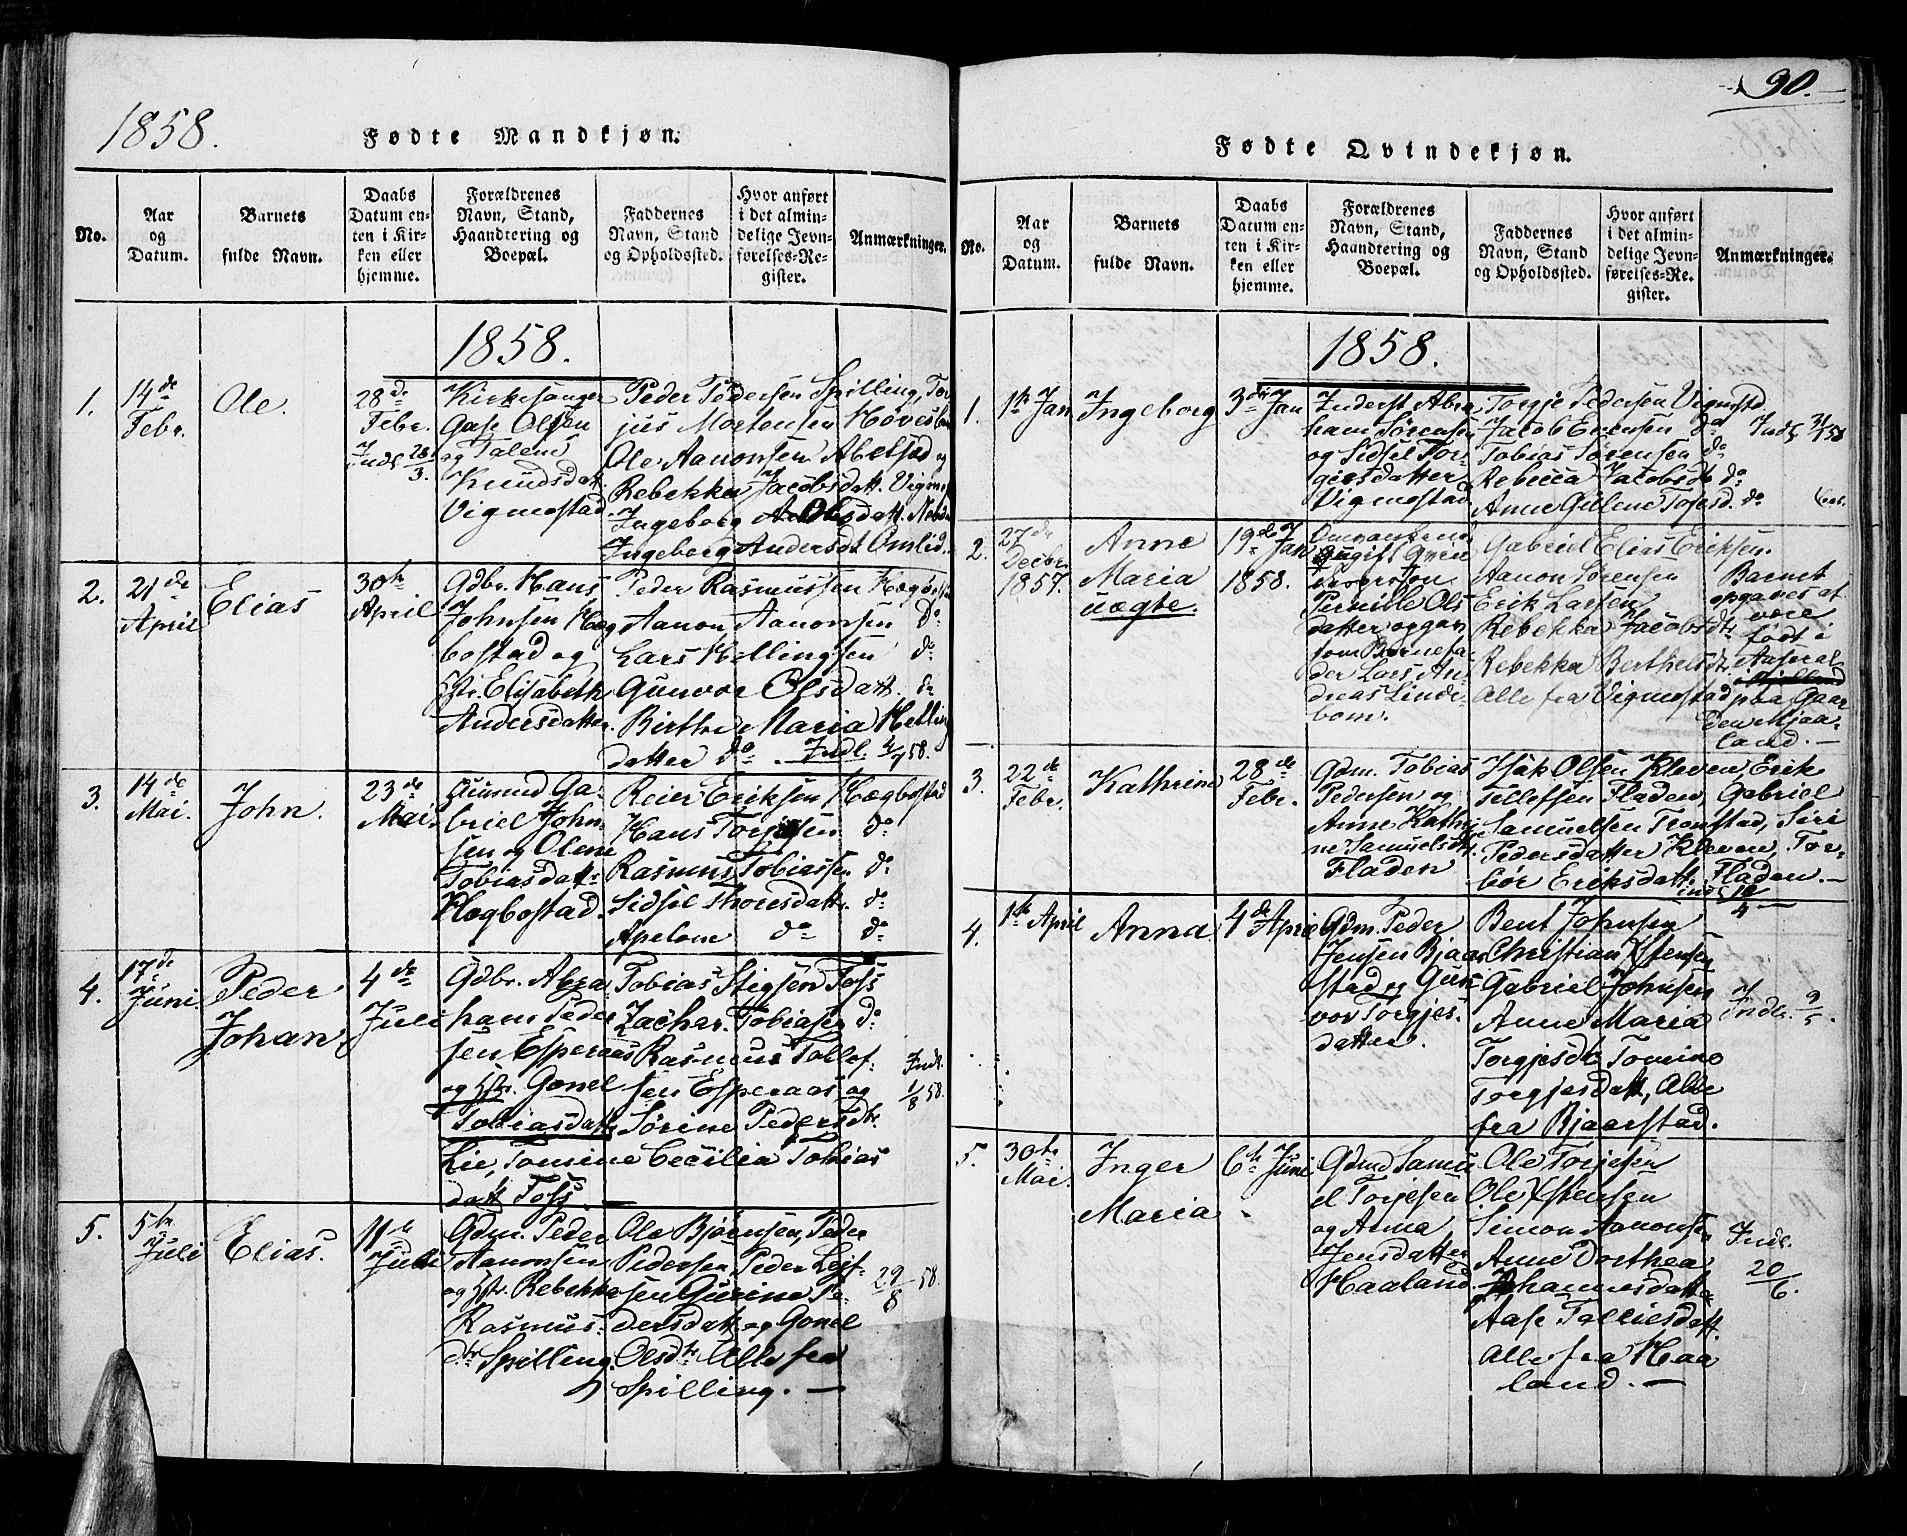 1858.
Fødte Mandkjøn.
No.
Aar
og
Datum.
Barnets
fulde Navn.
Daabs
Datum en-
ten i Kir-
ken eller
hjemme.
Forældrenes
Navn, Stand,
Haandtering og
Boepæl.
Faddernes
Navn, Stand
og Opholdssted.
Hvor anført
i det almin-
delige Jevn-
førelses-Re-
gister.
Anmærkninger.
1858.
1.
14de
Febr.
Ole.
28de
Febr.
Indl. 28/3.
Kirkesanger
Olsen
og Talene
Knudsdatt.
Vigmostad.
Peder Pedersen Spilling, Tor
jus Mortensen
Ole Aanonsen Abelsæd og
Rebekka Jacobsdatt. Vigm
Ingeborg Olsdatt.
Ingeborg Andersdt Omlid.
2.
21de
April
Elias
30te
April
Gdbr. Hans
Johnsen Hæg
bostad og
Hstr. Elisabeth
Andersdatter.
Peder Rasmussen
Aanon Aanonsen do
Lars Hellingsen do
Gunvor Olsdatt. do
Birthe Maria Helling
datter do. Indl. 4/7 58.
3.
14de
Mai.
John.
23de
Mai.
Ga-
briel John-
sen og Olene
Tobiasdatt.
Hægbostad.
Reier Eriksen Hægbostad
Hans Torjesen do
Rasmus Tobiassen do
Sidsel Thoresdatt. do
do do
4.
17de
Juni
Peder
Johan
4de
Juli
Gdbr. Abra
ham Peder
sen Esperaas
og Hstr. Gonel
Tobiasdatt.
Tobias Stigsen Foss
Zachar. Tobiasen do
Rasmus Tollef-
sen Esperaas og
Sørine Pedersdtr.
Lie, Tomine Cecilia Tobias
datt Foss. —
Indl.
1/8 58.
5.
5te
Juli
Elias.
11te
Juli
Gdm. Peder
Aanonsen
og Hstr. Rebekka
Rasmus-
dtr Spilling.
Ole Bjørnsen, Peder
Pedersen, Peder Leif-
sen Gurine Pe-
dersdatt. og Gonel
Olsdtr Alle fra
Spilling. —
29/8 58.
90.
Fødte Qvindekjøn.
No.
Aar
og
Datum.
Barnets
fulde Navn.
Daabs
Datum en-
ten i Kir-
ken eller
hjemme.
Forældrenes
Navn, Stand,
Haandtering og
Boepæl.
Faddernes
Navn, Stand
og Opholdssted.
Hvor anført
i det almin-
delige Jevn-
førelses-Re-
gister.
Anmærkninger.
1858.
1.
1te Jan
Ingeborg
3die Jan
Inderst Abra
ham Sørensen
og Sidsel Tor-
giersdatter
Vigmostad
Torje Pedersen Vigmstd
Jacob Evensen do
Tobias Sørensen do
Rebecca Jacobsdt do
Anne Gellene Torjesd. do
2.
27de
Decbr.
1857.
Anne
Maria
uægte.
19de Jan
1858.
Omvankende
ugift Qvin
Pernille Ols
datter, opgav
som Barnefa-
der Lars An-
dreas Linde-
bom.
Gabriel Elias Eriksen.
Aanon Sørensen
Erik Larsen
Rebekka Jacobsdtr
Rebekka Berthelsdtr.
Alle fra Vigmostad
Barnet
opgaves at
være
født i
Aaseral
paa Gaar
den Mjaa-
land. —
3.
22de
Febr.
Kathrine
28de
Febr.
Gdm. Tobias
Pedersen og
Anne Kathri
ne Samuelsdtr.
Fladen
Isak Olsen Kleven, Erik
Tellefsen Fladen, Gabriel
Samuelsen Tronstad, Siri
Pedersdatter Kleven, Tor-
bør Eriksdatt. Fladen. —
Indl 18/4 —
4.
1te April
Anna
4de April
Gdm. Peder
Jensen Bjaar
stad og Gun-
vor Torgjes-
datter.
Bent Johnsen
Christian Ostensen
Gabriel Johnsen
Anne Maria
Torgjesdtr Tomine
Torgjesdatt, Alle
fra Bjaarstad.
Indl. 9/5.
5.
30te
Mai.
Inger
Maria
6te Juni
Gdmd Samu
el Torjesen
og Anna
Jensdatter
Haaland
Ole Torjesen
Ole Ostensen
Simon Aanonsen
Anne Dorthea
Johannesdatter
Aase Tallesdatt.
Alle fra Haa
land. —
Indl.
20/6.